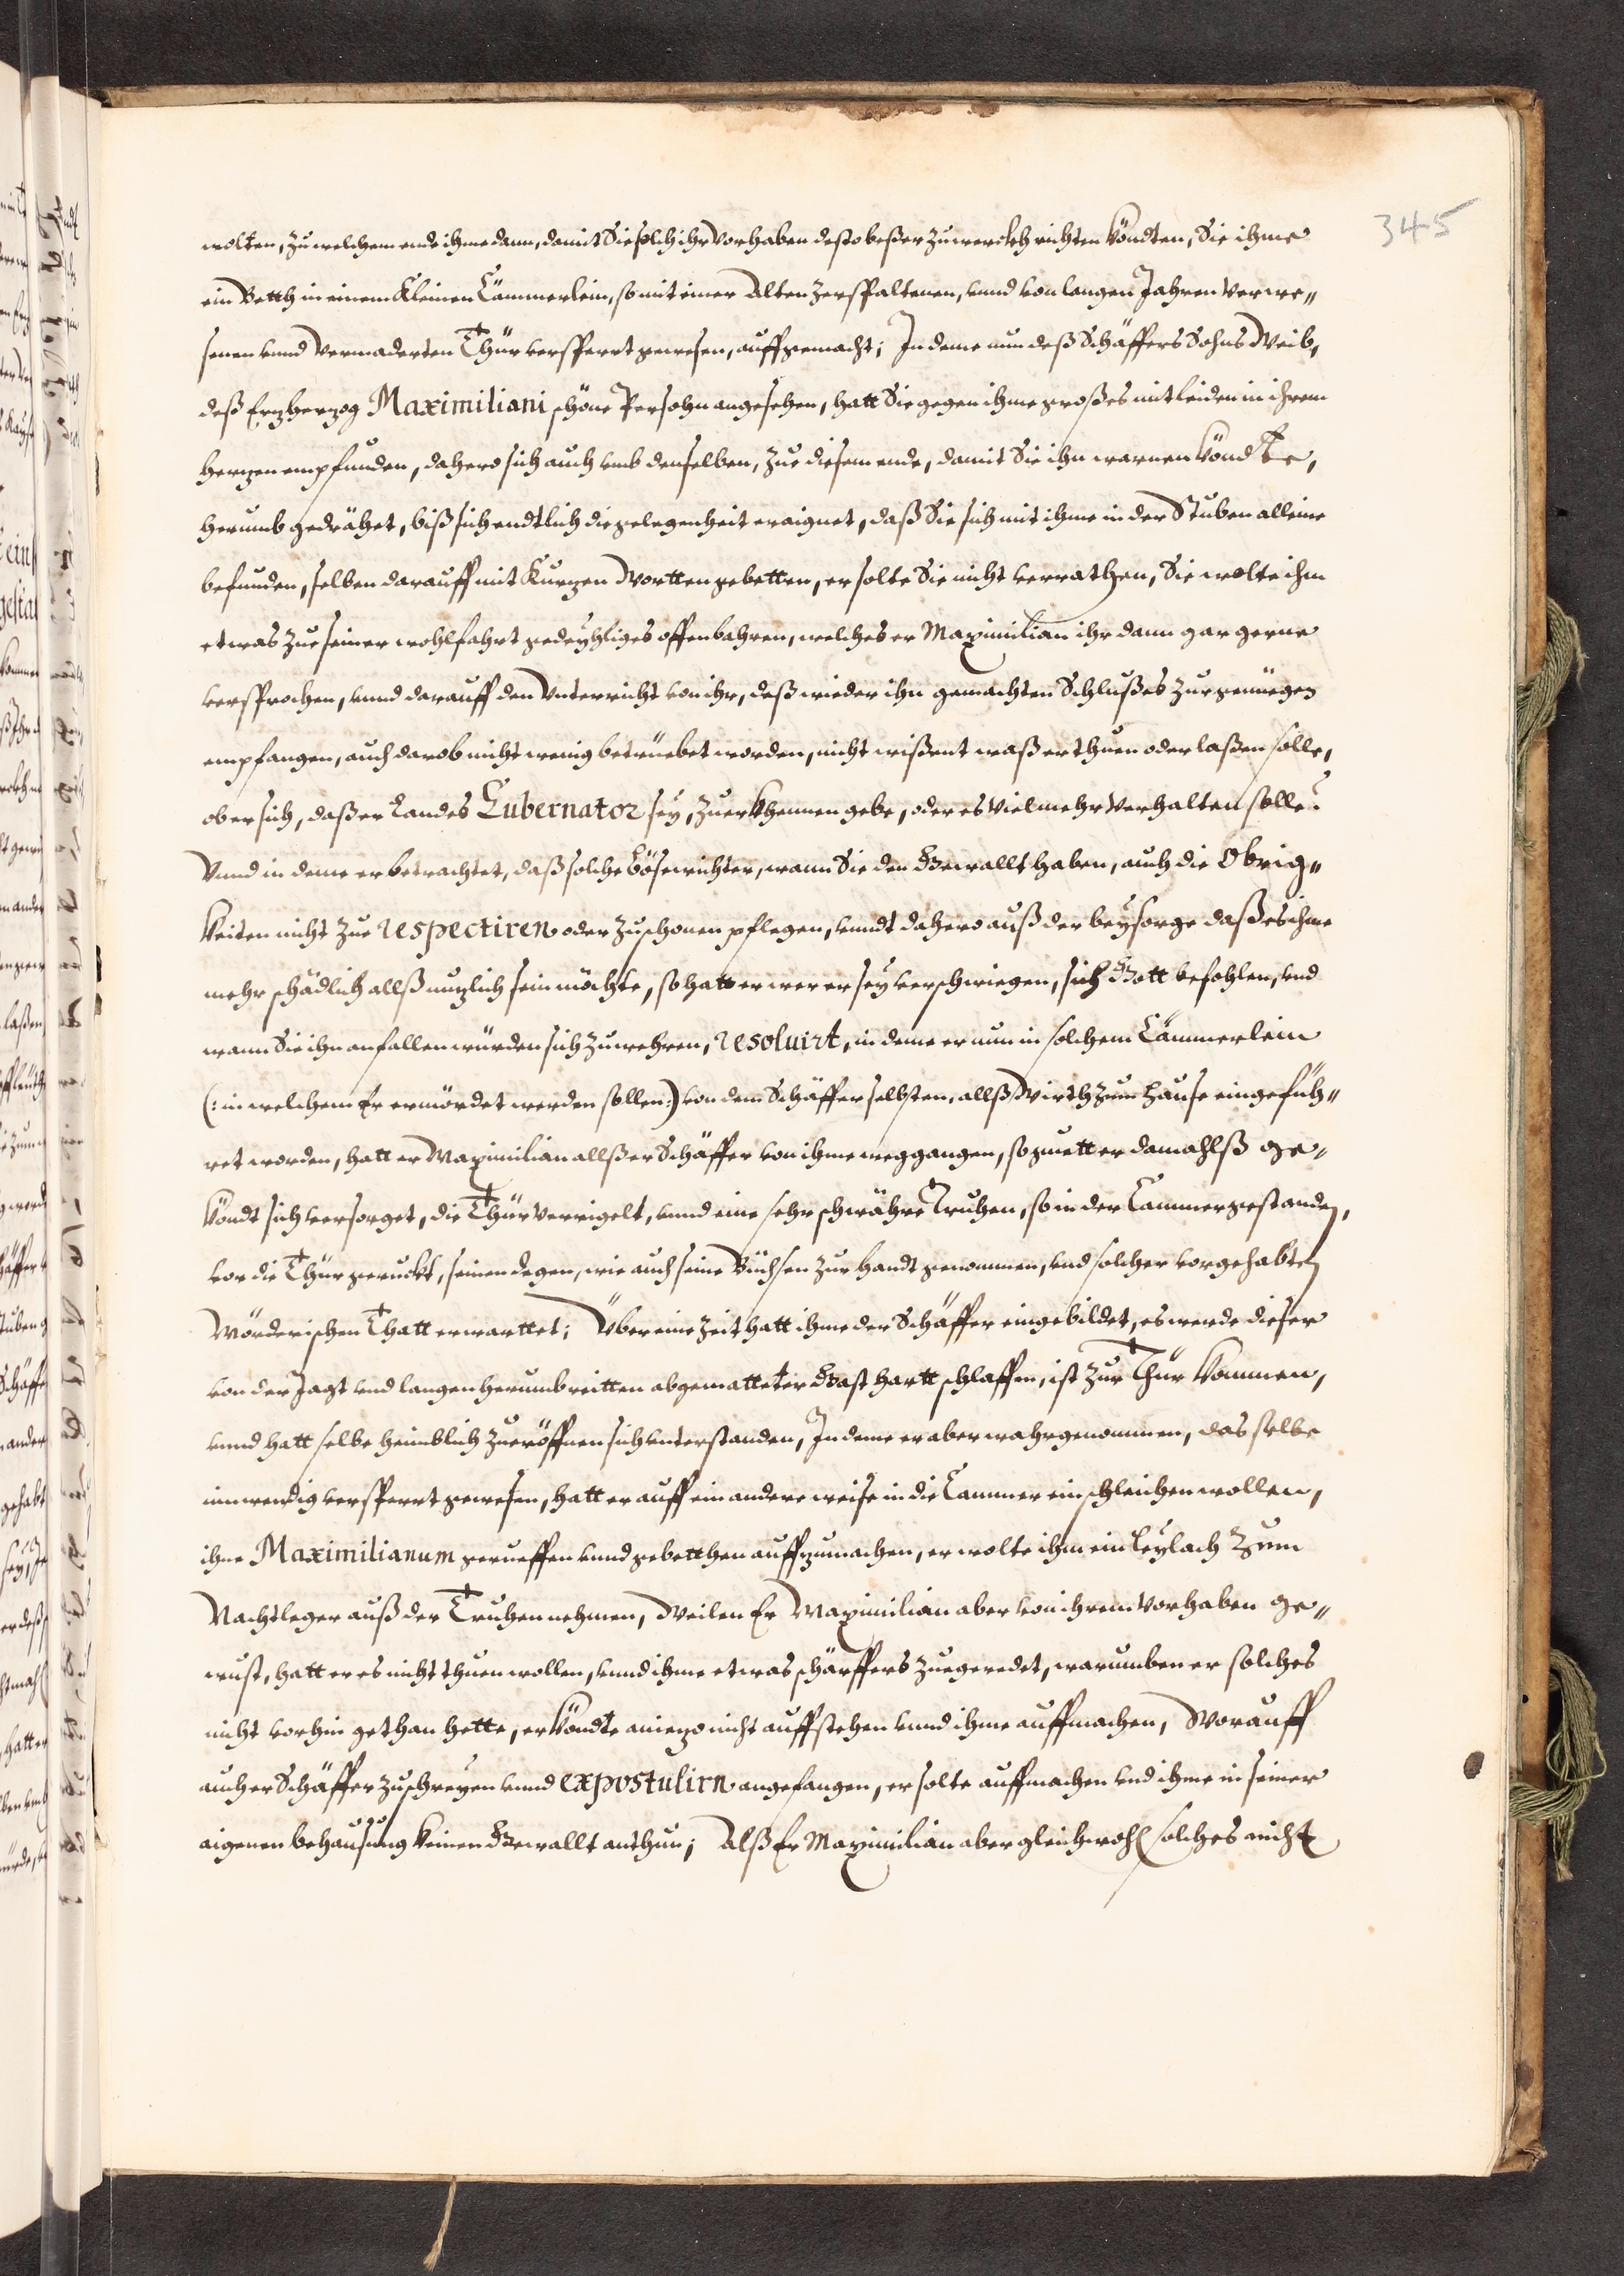 345
wolten, zu welchem ende ihme dann, damit Sie solch ihr Vorhaben desto beßer zu werckh richten köndten, Sie ihme
ein Betth in einem Kleinen Cämmerlein, so mit einer Alten zerspaltenen, vnnd von langen Jahren Verwe„
senen vnnd Vermaderten Thür versperrt gewesen, auffgemacht; In deme nun deß Schäffers Sohns Weib,
deß Erzherzog Maximiliani schöne Persohn angesehen, hatt Sie gegen ihme großes mitleiden in ihrem
herzen empfunden, dahero sich auch vmb denselben, zue diesem ende, damit Sie ihn warnen köndte,
herumb gedrähet, biß sich endtlich die gelegenheit eraignet, daß Sie sich mit ihme in der Stuben alleine
befunden, selben darauff mit Kurzen Wortten gebetten, er solte Sie nicht verrathen, Sie wolte ihm
etwas zue seiner wohlfahrt gedeyhliges offenbahren, welches er Maximilian ihr dann gar gerne
versprochen, vnnd darauff den Vnterricht von ihr, deß wieder ihn gemachten Schlußes zur genüegen
empfangen, auch darob nicht wenig betrüebet worden, nicht wißent waß er thuen oder laßen solle,
ob er sich, daß er Landes Gubernator sey, zu erkhennen gebe, oder es Vielmehr Verhalten solle?
Vnnd in deme er betrachtet, daß solche Bösewichter, wann Sie den Gewallt haben, auch die Obrig„
keiten nicht zue respectiren oder zu schonen pflegen, vnndt dahero auß der beysorge daß es ihme
mehr schädlich allß nuzlich sein möchte, so hatt er wer er sey verschwiegen, sich Gott befohlen, vnd
wann Sie ihn anfallen würden sich zu wehren, resoluirt, in deme er nun in solchem Cämmerlein
(: in welchem Er ermördet werden sollen :) von dem Schäffer selbsten, allß Wirth zum Hause eingefüh„
ret worden, hatt er Maximilian allß er Schäffer von ihme weggangen, so guett er damahlß ge„
köndt sich versorget, die Thür Verrigelt, vnnd eine sehr schwähre Truhen, so in der Cammer gestanden,
vor die Thür geruckt, seinen degen, wie auch seine Büchsen zur handt genommen, vnd solcher vorgehabten
Mörderischen Thatt erwarttet; Über eine Zeit hatt ihme der Schäffer eingebildet, es werde dieser
von der Jagt vnd langen herumb reitten abgematteter Gast hartt schlaffen, ist zur Thür kommen,
vnnd hatt selbe heimblich zu eröffnen sich vnterstanden, In deme er aber wahrgenommen, das selbe
innwendig versperrt gewesen, hatt er auff ein andere weise in die Cammer einschleichen wollen,
ihne Maximilianum gerueffen vnnd gebetthen auffzumachen, er wolte ihm ein Leylach zum
Nachtleger auß der Truhen nehmen, Weilen Er Maximilian aber von ihrem Vorhaben ge„
wust, hatt er es nicht thuen wollen, vnnd ihme etwas schärffers zuegeredet, warumben er solches
nicht vorhin gethan hette, er köndte aniezo nicht auffstehen vnnd ihme auffmachen, Worauff
auch er Schäffer zu schreyen vnnd expostulirn angefangen, er solte auffmachen vnd ihme in seiner
aigenen behausung keinen Gewallt anthun; Alß Er Maximilian aber gleichwohl solches nicht